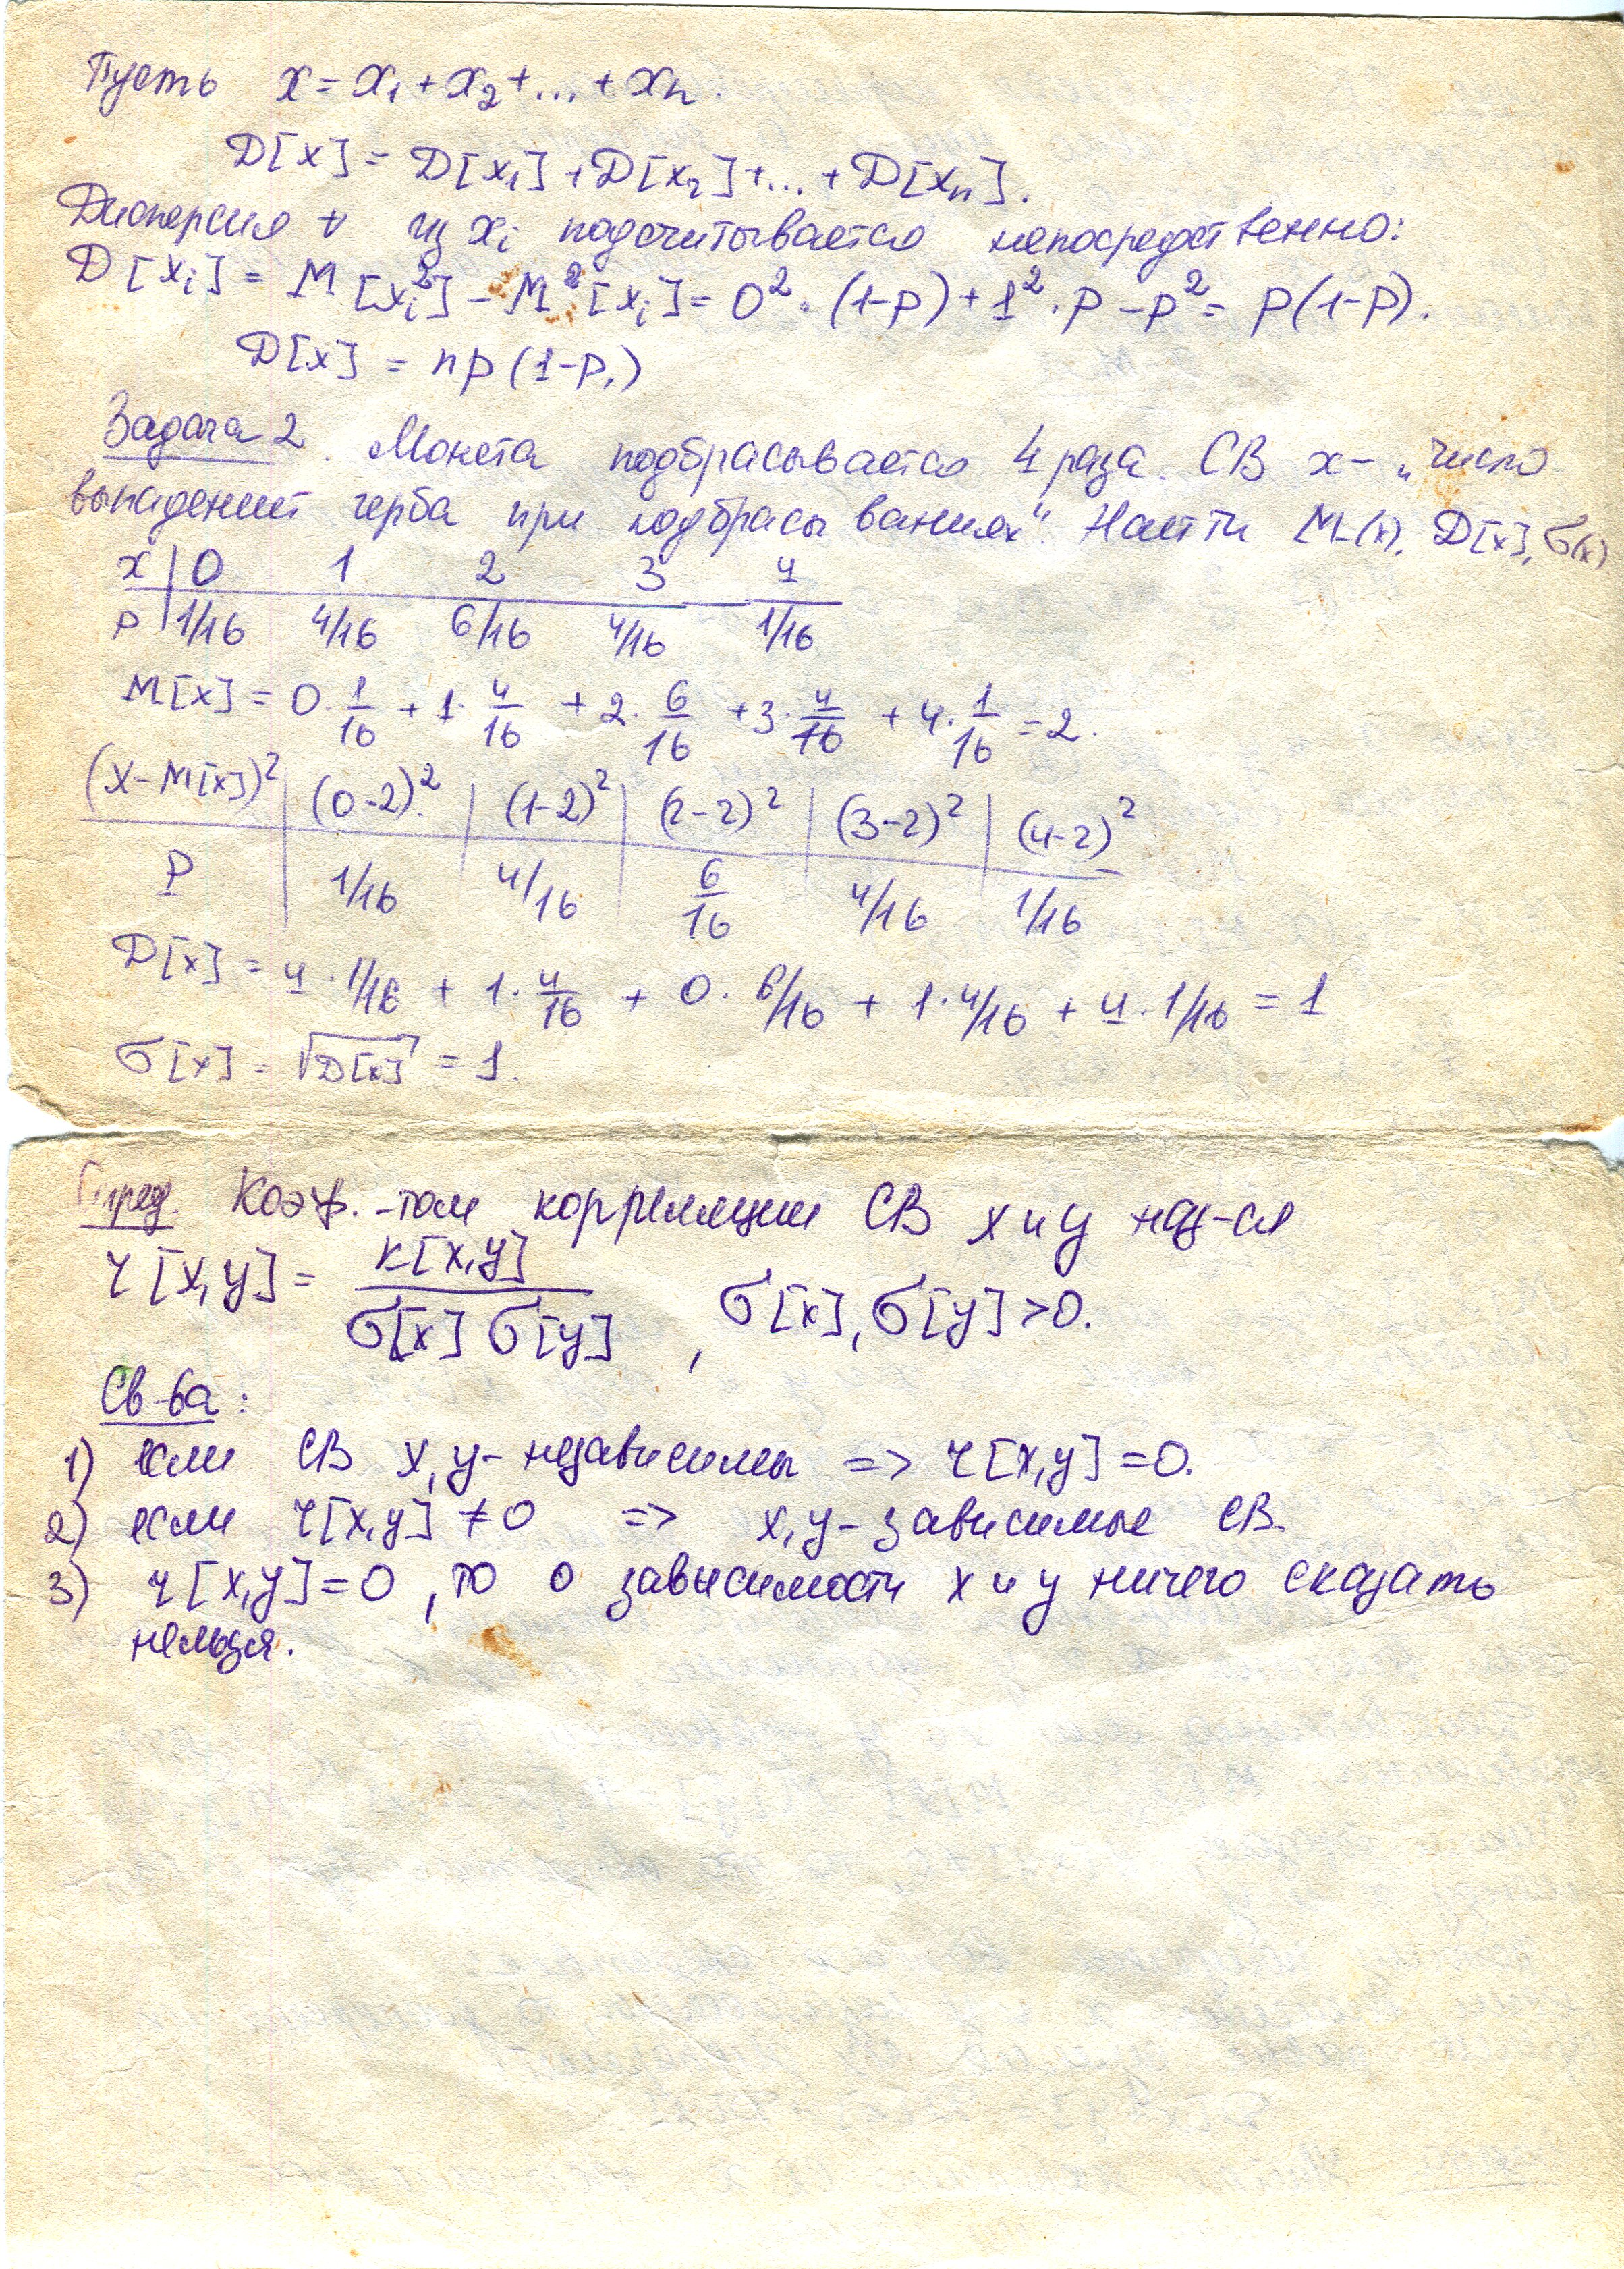 Пусть x = x₁ + x₂ + ... + xₙ.
D[x] = D[x₁] + D[x₂] + ... + D[xₙ].
Дисперсия ∀ из xᵢ подсчитывается непосредственно:
D[xᵢ] = M[xᵢ²] - M²[xᵢ] = 0² · (1-p) + 1² · p - p² = p(1-p).
D[x] = np(1-p.)
Задача 2. Монета подбрасывается 4 раза. СВ x - „число
выпадений герба при подбрасываниях". Найти M(x), D[x], σ(x)
x | 0 1 2 3 4
p | 1/16 4/16 6/16 4/16 1/16
M[x] = 0 · 1/16 + 1 · 4/16 + 2 · 6/16 + 3 · 4/16 + 4 · 1/16 = 2.
(x - M[x])² | (0-2)² | (1-2)² | (2-2)² | (3-2)² | (4-2)²
P | 1/16 | 4/16 | 6/16 | 4/16 | 1/16
D[x] = 4 · 1/16 + 1 · 4/16 + 0 · 6/16 + 1 · 4/16 + 4 · 1/16 = 1
σ[x] = √D[x] = 1.
Опред. Коэф.-том корреляции СВ x и y наз-ся
r[x,y] = K[x,y] / σ[x] σ[y] , σ[x], σ[y] > 0.
Св-ва:
1) если СВ x, y - независимы => r[x,y] = 0.
2) если r[x,y] ≠ 0 => x, y - зависимые СВ.
3) r[x,y] = 0, то о зависимости x и y ничего сказать
нельзя.